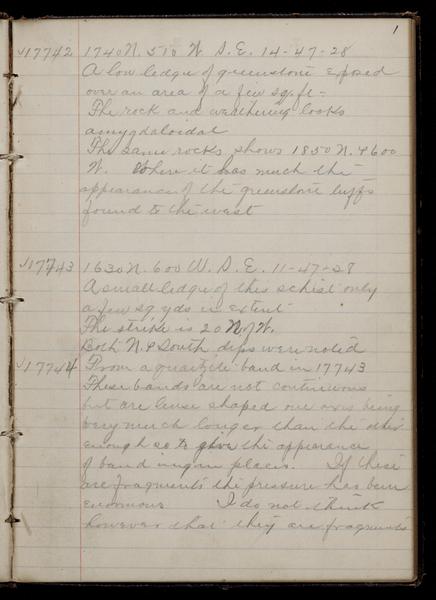 1
17742 1740 N. 510 W. S.E. 14-47-28
A low ledge of greenstone exposed
over an area of a few sq. ft-
The rock and weathering looks
amygdaloidal
The same rocks shows 1850 N. & 600
W. Where it has much the
appearance of the greenstone tuffs
found to the west
17743 1630 N. 600 W. S.E. 11-47-28
A small ledge of this schist only
a few sq. yds in extent
The strike is 20 N. of W.
Both N. & South dips were noted
17744 From a quartzite band in 17743
These bands are not continuous
but are lense shaped one axis being
very much longer than the other
enough so to give the appearance
of band in places. If these
are fragments the pressure has been
enormous I do not think
however that they are fragments